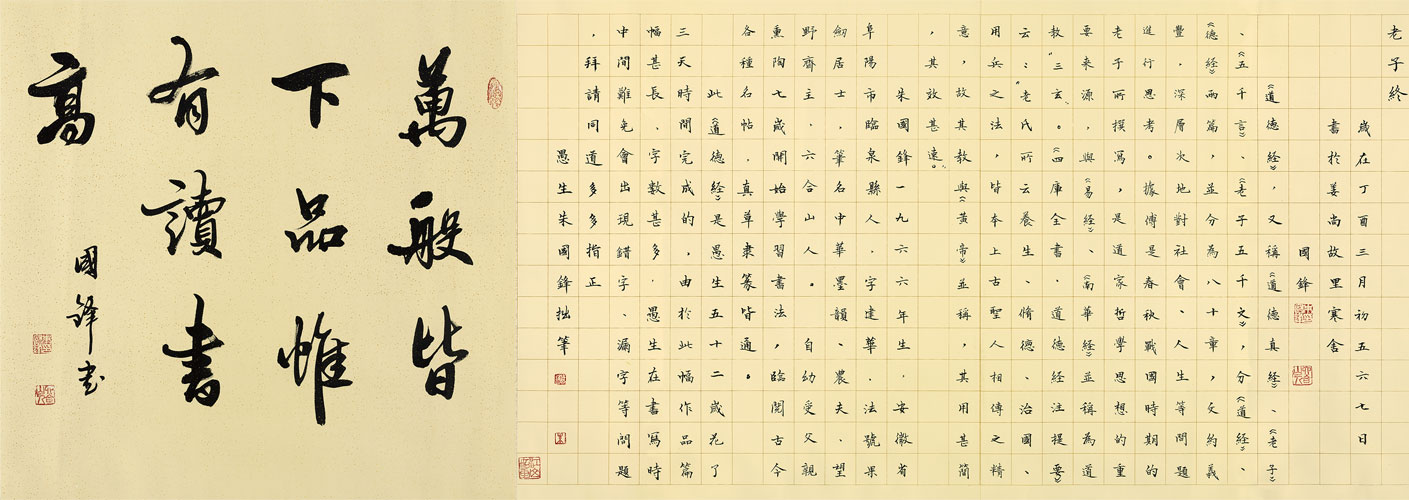 萬般皆
下品惟
有讀書
高
國鋒書
老子終
歲在丁酉三月初五六七日
書於姜尚故里寒舍
國鋒
《道德經》,又稱《道德真經》、《老子
、《五千言》、《老子五千文》,分《道經》、
《德經》兩篇,並分為八十章,文約義
豐,深層次地對社會、人生等問題
進行思考。據傳是春秋戰國時期的
老子所撰寫,是道家哲學思想的重
要來源,與《易經》、《南華經》並稱為道
教“三玄”。《四庫全書·道德經注提要》
云:“老氏所云養生、脩德、治國、
用兵之法,皆本上古聖人相傳之精
意,故其教與《黃帝》並稱,其用甚簡
,其效甚遠。”
朱國鋒一九六六年生.安徽省
阜陽市臨泉縣人.字建華.法號果
劍居士,筆名中華墨韻、農夫、望
野齋主、六合山人。自幼受父親
熏陶七歲開始學習書法,臨閱古今
各種名帖.真草隸篆皆通。
此《道德經》是愚生五十二歲花了
三天時間完成的,由於此幅作品篇
幅甚長、字數甚多.愚生在書寫時
中間難免會出現錯字、漏字等問題
,拜請同道多多指正
愚生朱國鋒拙筆